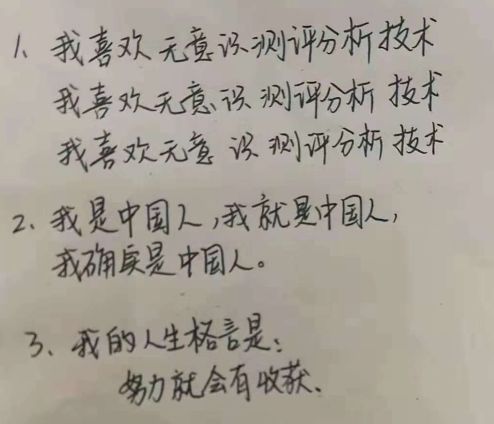 1、我喜欢无意识测评分析技术
我喜欢无意识测评分析技术
我喜欢无意识测评分析技术
2、我是中国人,我就是中国人,
我确实是中国人。
3、我的人生格言是:
努力就会有收获、